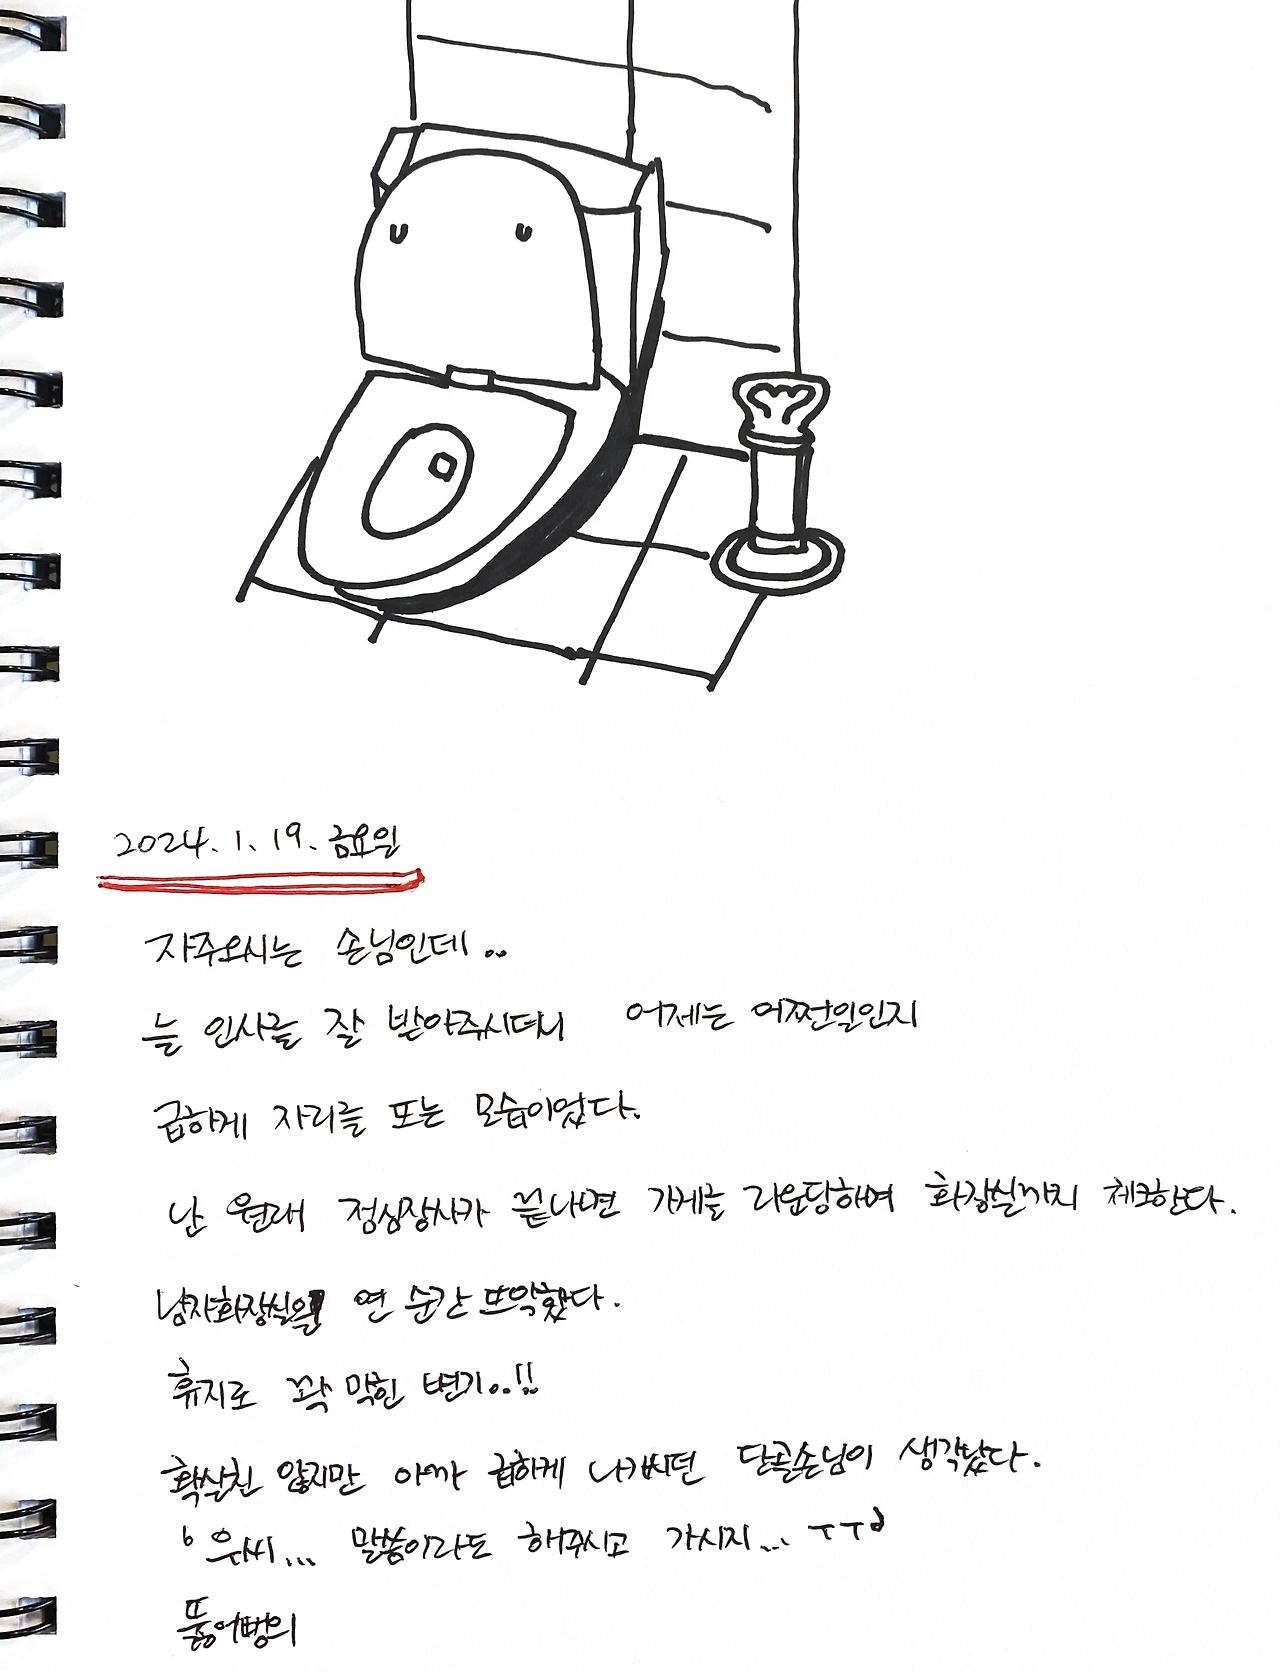 2024. 1. 19.금요일
자주오시는 손님인데..
늘 인사를 잘 받아주시더니 어제는 어쩐일인지
급하게 자리를 뜨는 모습이었다.
난 원래 점심장사가 끝나면 가게를 라운딩하며 화장실까지 체크한다.
남자화장실을 연 순간 뜨악했다.
휴지로 꽉 막힌 변기..!!
확실친 않지만 아까 급하게 나가시던 단골손님이 생각났다.
'우씨... 말씀이라도 해주시고 가시지... ㅜㅜ'
뚫어뻥의